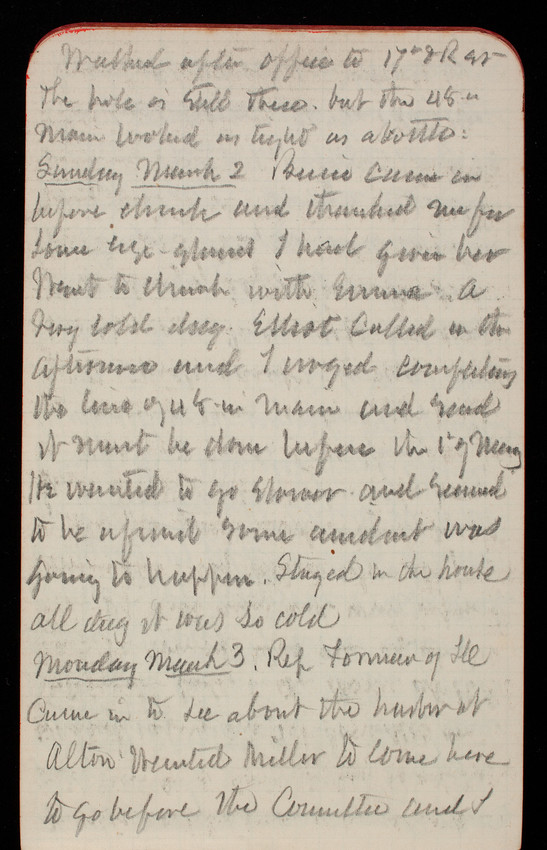 Walked after office to 17th & R St
The hole is still there. but the 48 in
main looked as tight as a bottle:
Sunday March 2 Bessie came in
before church and thanked me for
some eye-glasses I had given her
Went to church with Emma. A
very cold day. Elliot called in the
afternoon and I urged completing
the line of 48 in main and said
it must be done before the 1st of May
He wanted to go slower and seemed
to be afraid some accident was
going to happen. Stayed in the house
all day it was so cold
Monday March 3. Rep Forman of Ill
came in to see about the harbor at
Alton Wanted Miller to come here
to go before the Committee and I